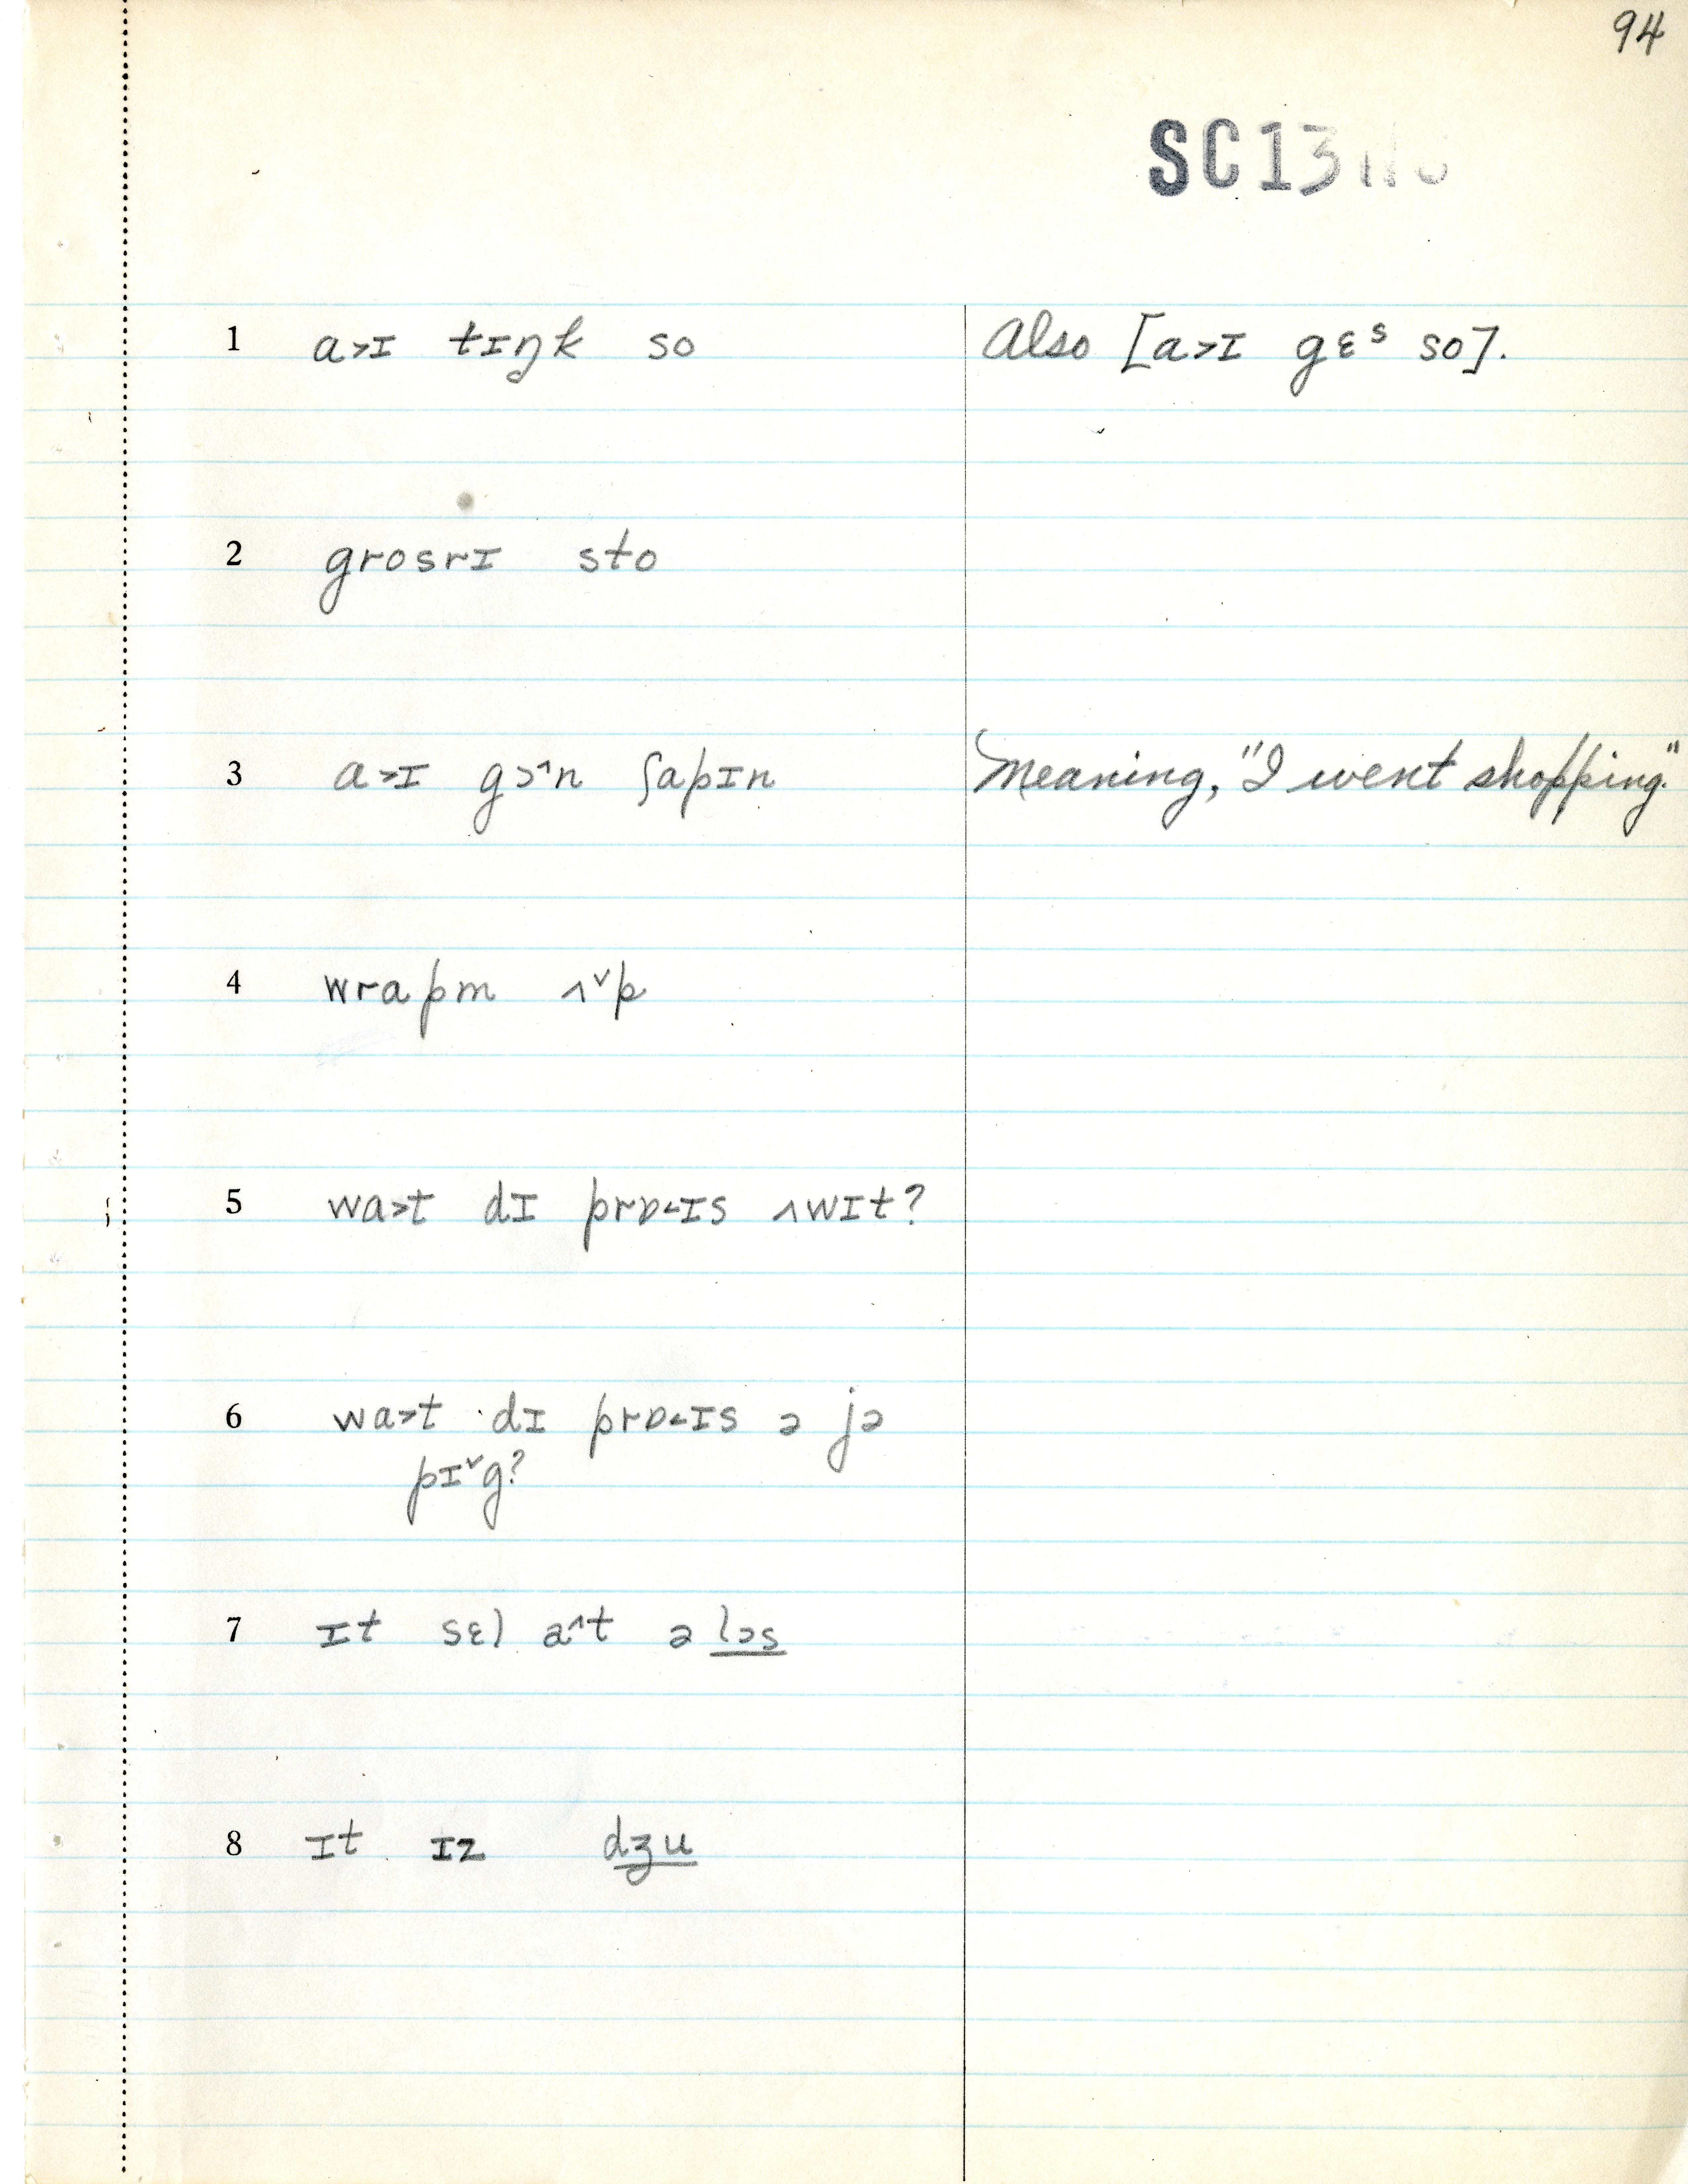 94
SC13
1 a>ɪ tɪŋk so Also [a>ɪ gɛˢ so].
2 grosrɪ sto
3 a>ɪ gɔ^n ʃapɪn Meaning, "I went shopping."
4 wrapm ʌˇp
5 wa>t dɪ prɒ<ɪs ʌwɪt?
6 wa>t dɪ prɒ<ɪs ə jə
pɪˇg?
7 ɪt sɛl a^t ə lɔs
8 ɪt ɪz dʒu